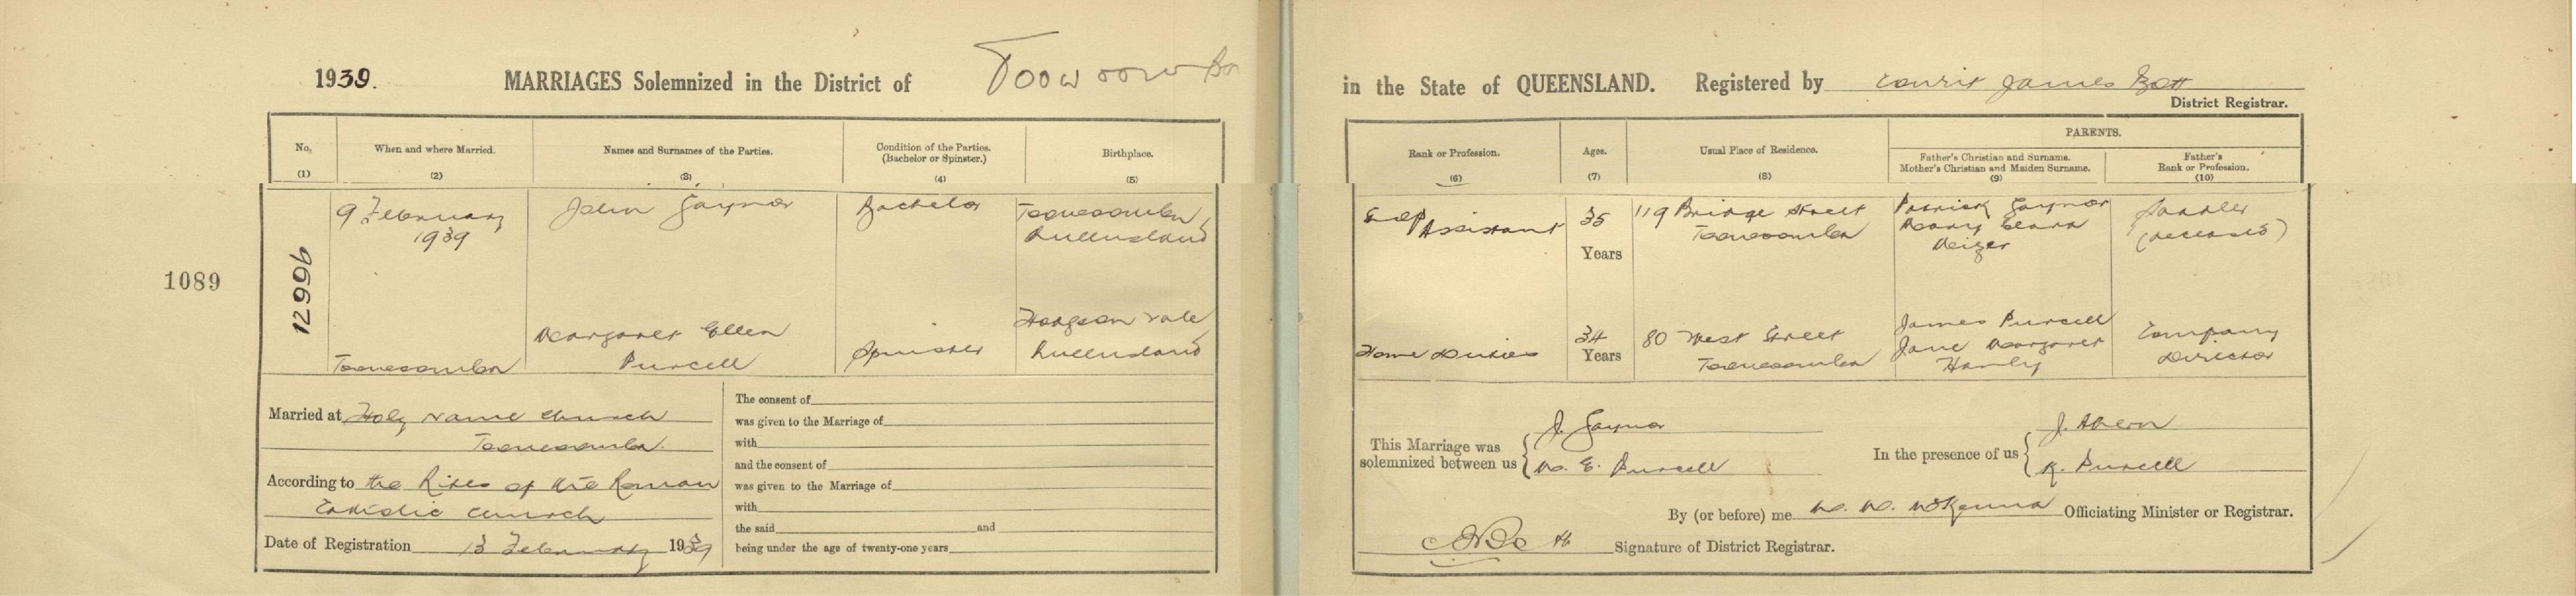 1939. MARRIAGES Solemnized in the District of Toowoomba in the State of QUEENSLAND. Registered by James Bott
District Registrar.
No. (1)
When and where Married. (2)
Names and Surnames of the Parties. (3)
Condition of the Parties. (Bachelor or Spinster.) (4)
Birthplace. (5)
Rank or Profession. (6)
Ages. (7)
Usual Place of Residence. (8)
PARENTS.
Father's Christian and Surname. Mother's Christian and Maiden Surname. (9)
Father's Rank or Profession. (10)
1089
12996
9 February
1939
John Gaynor
Bachelor
Toowoomba
Queensland
Shop Assistant
35
Years
119 Bridge Street
Toowoomba
Patrick Gaynor
Mary Clara
Saddler
(deceased)
Toowoomba
Margaret Ellen
Purcell
Spinster
Hodgson Vale
Queensland
Home Duties
34
Years
80 West Street
Toowoomba
James Purcell
Jane Margaret
Hanly
Company
Director
Married at Holy Name Church
Toowoomba.
According to the Rites of the Roman
Catholic Church
Date of Registration 13 February 1939
The consent of
was given to the Marriage of
with
and the consent of
was given to the Marriage of
with
the said and
being under the age of twenty-one years
This Marriage was solemnized between us
J. Gaynor
M. E. Purcell
In the presence of us
J. Ahern
K. Purcell
By (or before) me M. M. McKenna Officiating Minister or Registrar.
Signature of District Registrar.